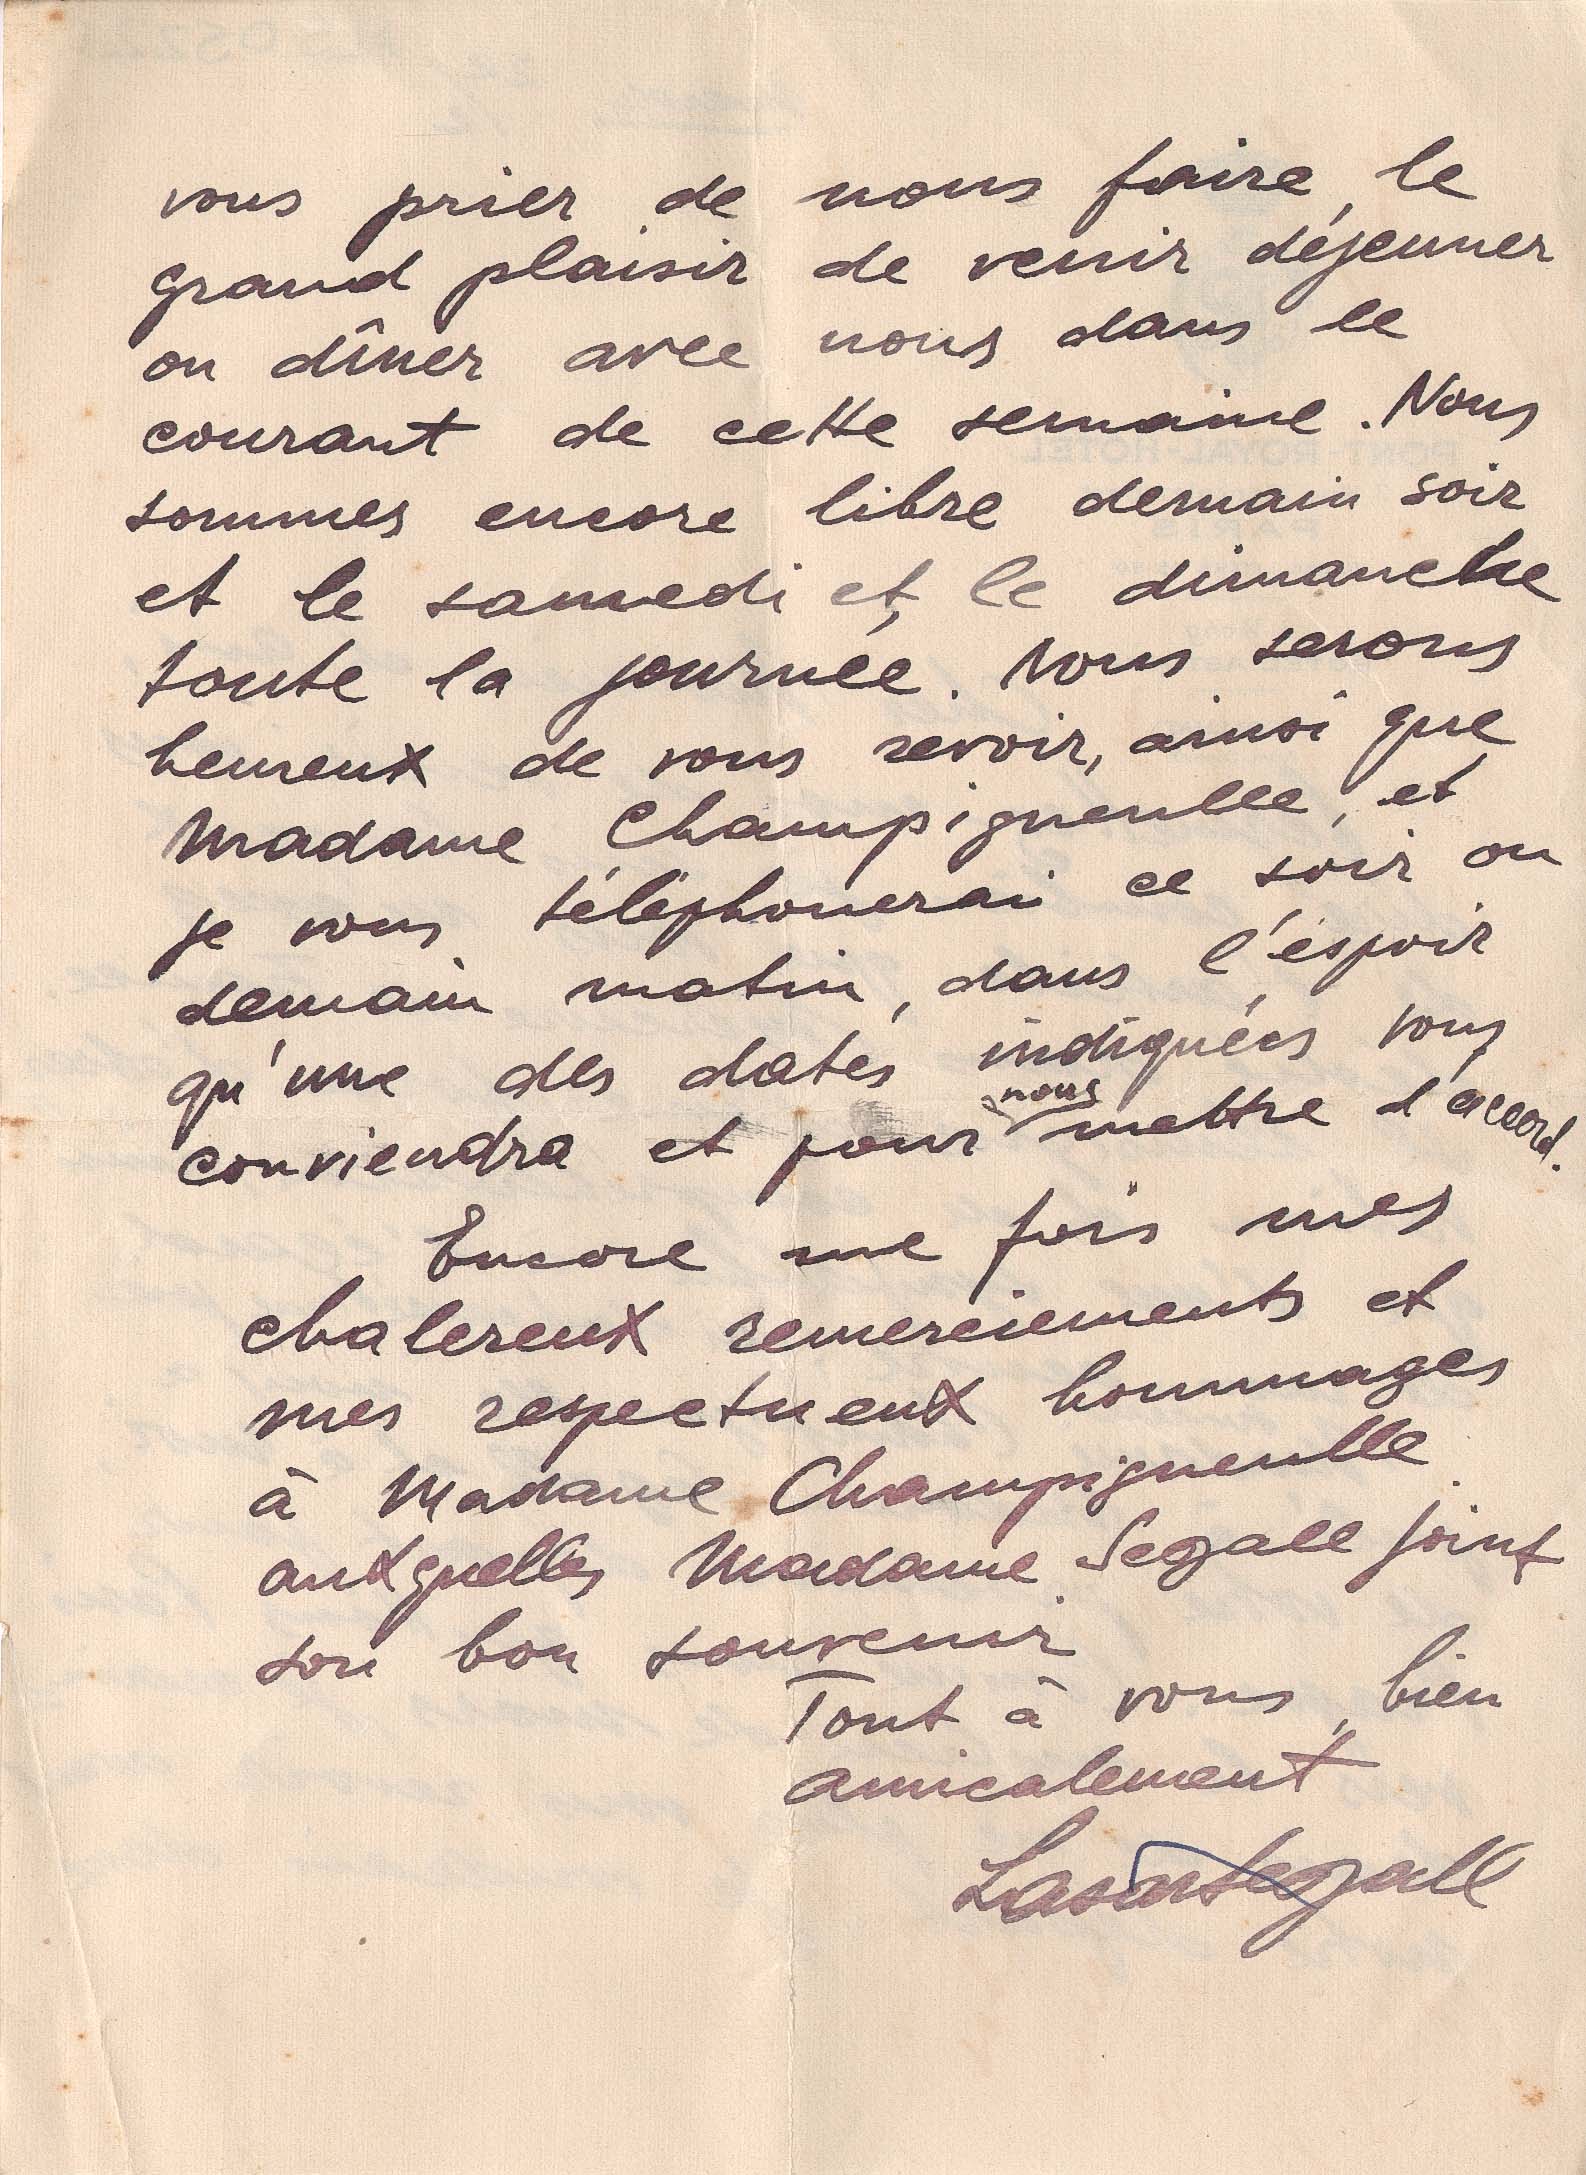 vous prier de nous faire le
grand plaisir de venir déjeuner
ou dîner avec nous dans le
courant de cette semaine. Nous
sommes encore libre demain soir
et le samedi et le dimanche
toute la journée. Nous serons
heureux de vous revoir, ainsi que
Madame Champigneulle, et
je vous téléphonerai ce soir ou
demain matin, dans l'éspoir
qu'une des dates indiquées vous
conviendra et pour nous mettre d'accord.
Encore une fois mes
chalereux remerciements et
mes respectueux hommages
à Madame Champigneulle
auxquelles Madame Segall joint
son bon souvenir
Tout à vous, bien
amicalement
Lasar Segall
PONT-ROYAL-HOTEL
PARIS